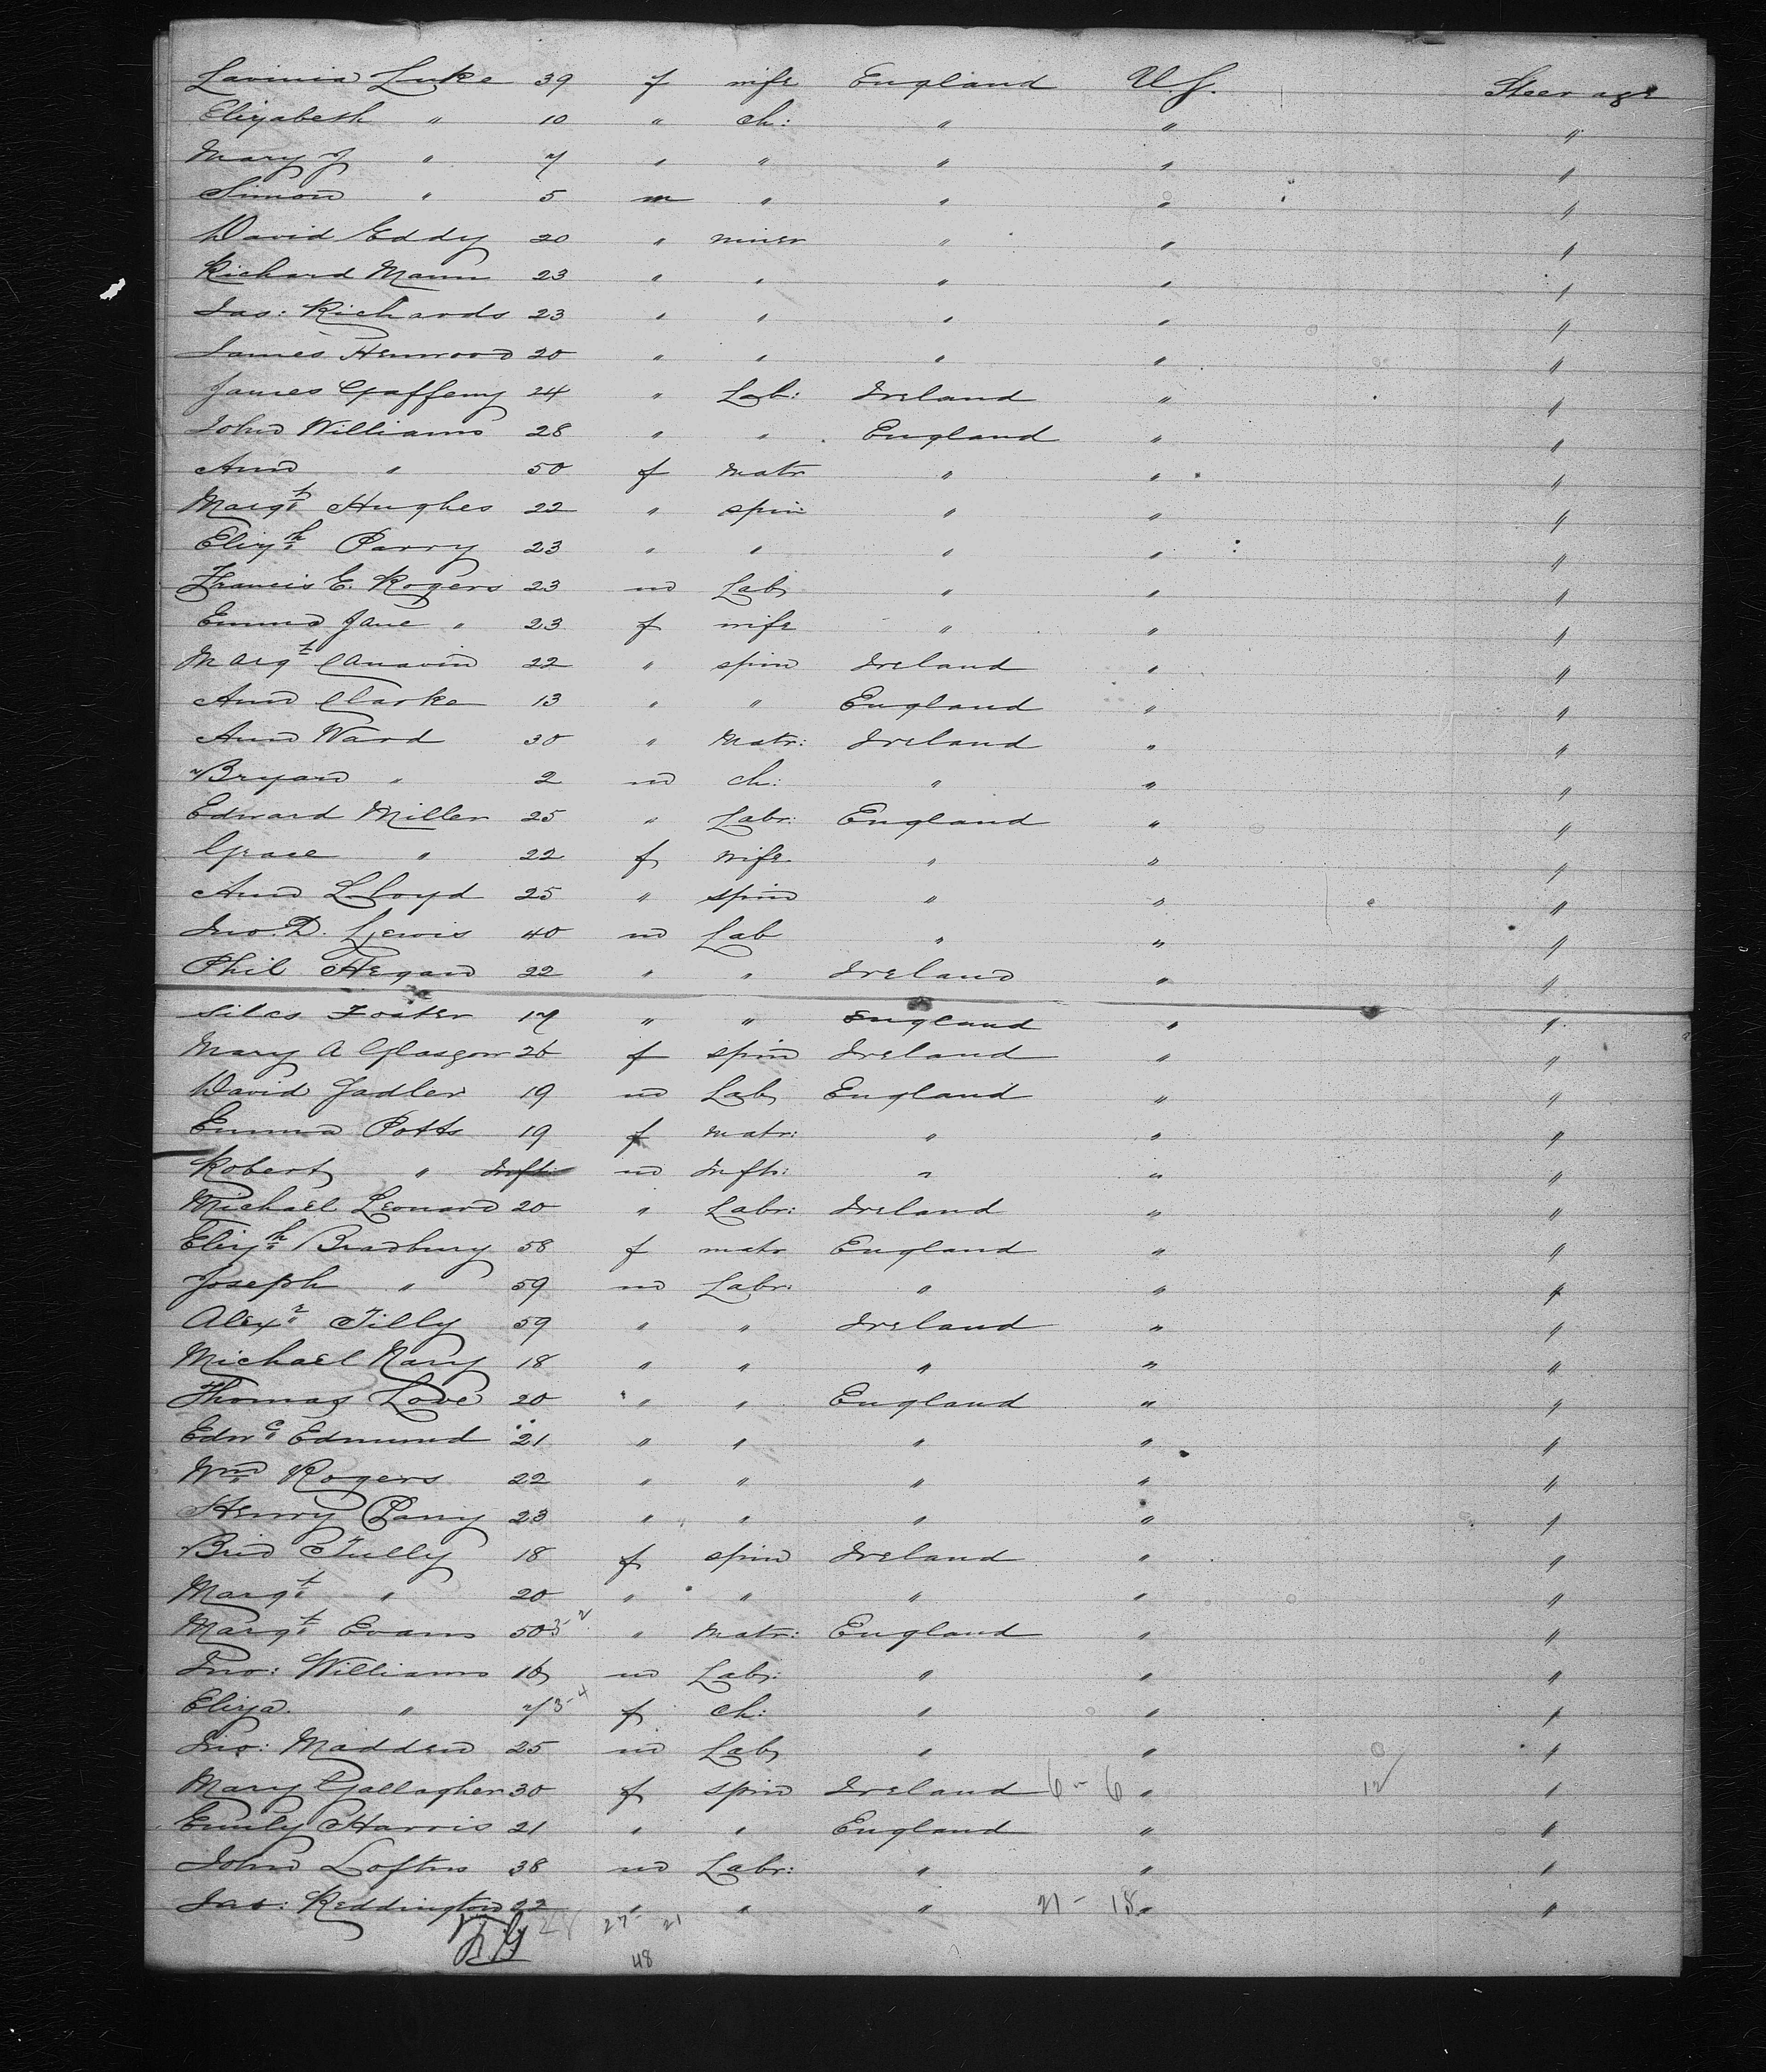 Lavinia Luke 39 f wife England U.S. Steerage
Elizabeth " 10 " ch: " " "
Mary J " 7 " " " " "
Simon " 5 m " " " "
David Eddy 20 " miner " " "
Richard Mann 23 " " " " "
Jas: Richards 23 " " " " "
James Henwood 20 " " " " "
James Gaffeny 24 " Lab: Ireland " "
John Williams 28 " " England " "
Ann " 50 f matr " " "
Margt Hughes 22 " spin " " "
Elizh Parry 23 " " " " "
Francis E. Rogers 23 m Lab " " "
Emma Jane " 23 f wife " " "
Margt Canavin 22 " spin Ireland " "
Ann Clarke 13 " " England " "
Ann Ward 30 " Matr: Ireland " "
Bryan " 2 m ch: " " "
Edward Miller 25 " Labr: England " "
Grace " 22 f wife " " "
Ann Lloyd 25 " spin " " "
Jno. D. Lewis 40 m Lab " " "
Phil Hegan 22 " " Ireland " "
Silas Foster 17 " " England " "
Mary A Glasgow 26 f spin Ireland " "
David Jadler 19 m Lab England " "
Emma Potts 19 f matr: " " "
Robert " Inft: m Inft: " " "
Michael Leonard 20 " Labr: Ireland " "
Elizh Bradbury 58 f matr England " "
Joseph " 59 m Labr: " " "
Alexr Tilly 59 " " Ireland " "
Michael Nary 18 " " " " "
Thomas Love 20 " " England " "
Edwd Edmund 21 " " " " "
Wm Rogers 22 " " " " "
Henry Parry 23 " " " " "
Brid Tully 18 f spin Ireland " "
Margt " 20 " " " " "
Margt Evans 50 " Matr: England " "
Jno: Williams 16 m Lab: " " "
Eliza. " 7 f ch: " " "
Jno: Madden 25 m Lab " " "
Mary Gallagher 30 f spin Ireland 6 - 6 " 12 "
Emily Harris 21 " " England " "
John Loftus 38 m Labr: " " "
Jas: Reddington 22 " " " 21 - 18 " "
28 27 - 21
48